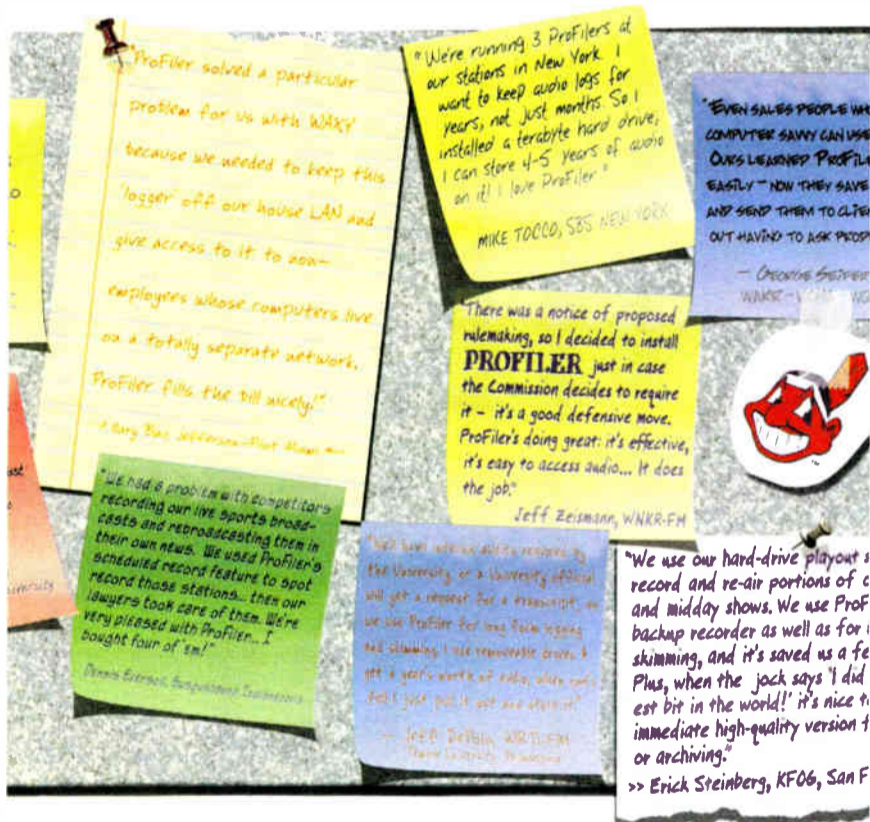 "ProFiler solved a particular
problem for us with WAXY
because we needed to keep this
'logger' off our house LAN and
give access to it to non-
employees whose computers live
on a totally separate network.
ProFiler fills the bill nicely!"
"We're running 3 ProFilers at
our stations in New York. I
want to keep audio logs for
years, not just months. So I
installed a terabyte hard drive,
I can store 4-5 years of audio
on it! I love ProFiler"
MIKE TOCCO, SBS NEW YORK
"EVEN SALES PEOPLE WH
COMPUTER SAVVY CAN USE
OURS LEARNED PROFILE
EASILY – NOW THEY SAVE
AND SEND THEM TO CLIE
OUT HAVING TO ASK PEOP
— GEORGE SEIFER
"There was a notice of proposed
rulemaking, so I decided to install
PROFILER just in case
the Commission decides to require
it – it's a good defensive move.
ProFiler's doing great: it's effective,
it's easy to access audio... It does
the job."
Jeff Zeismann, WNKR-FM
"We had a problem with competitors
recording our live sports broad-
casts and rebroadcasting them in
their own news. We used ProFiler's
scheduled record feature to spot
record those stations... then our
lawyers took care of them. We're
very pleased with ProFiler... I
bought four of 'em!"
the University or a University official
will get a request for a transcript, so
we use ProFiler for long form logging
and skimming. I use removable drives. I
get a year's worth of audio, when
I just pull it out and store it"
WRTI-FM
"We use our hard-drive playout s
record and re-air portions of
and midday shows. We use ProF
backup recorder as well as for
skimming, and it's saved us a fe
Plus, when the jock says 'I did
est bit in the world!' it's nice t
immediate high-quality version f
or archiving."
>> Erick Steinberg, KFOG, San F